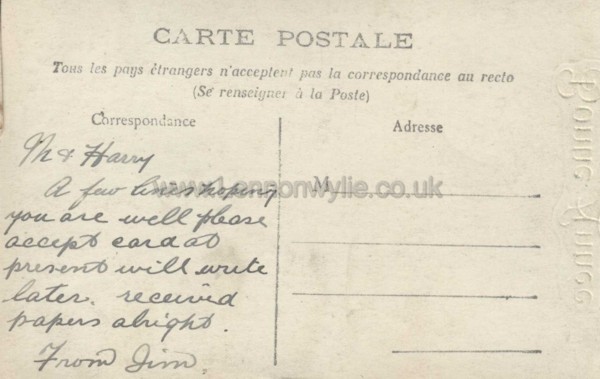 CARTE POSTALE
Tous les pays étrangers n'acceptent pas la correspondance au recto
(Se renseigner à la Poste)
Correspondance
Adresse
M & Harry
A few lines hoping
you are well please
accept card at
present will write
later. received
papers alright.
From Jim.
M
www.Lennonwylie.co.uk
Bonne Année